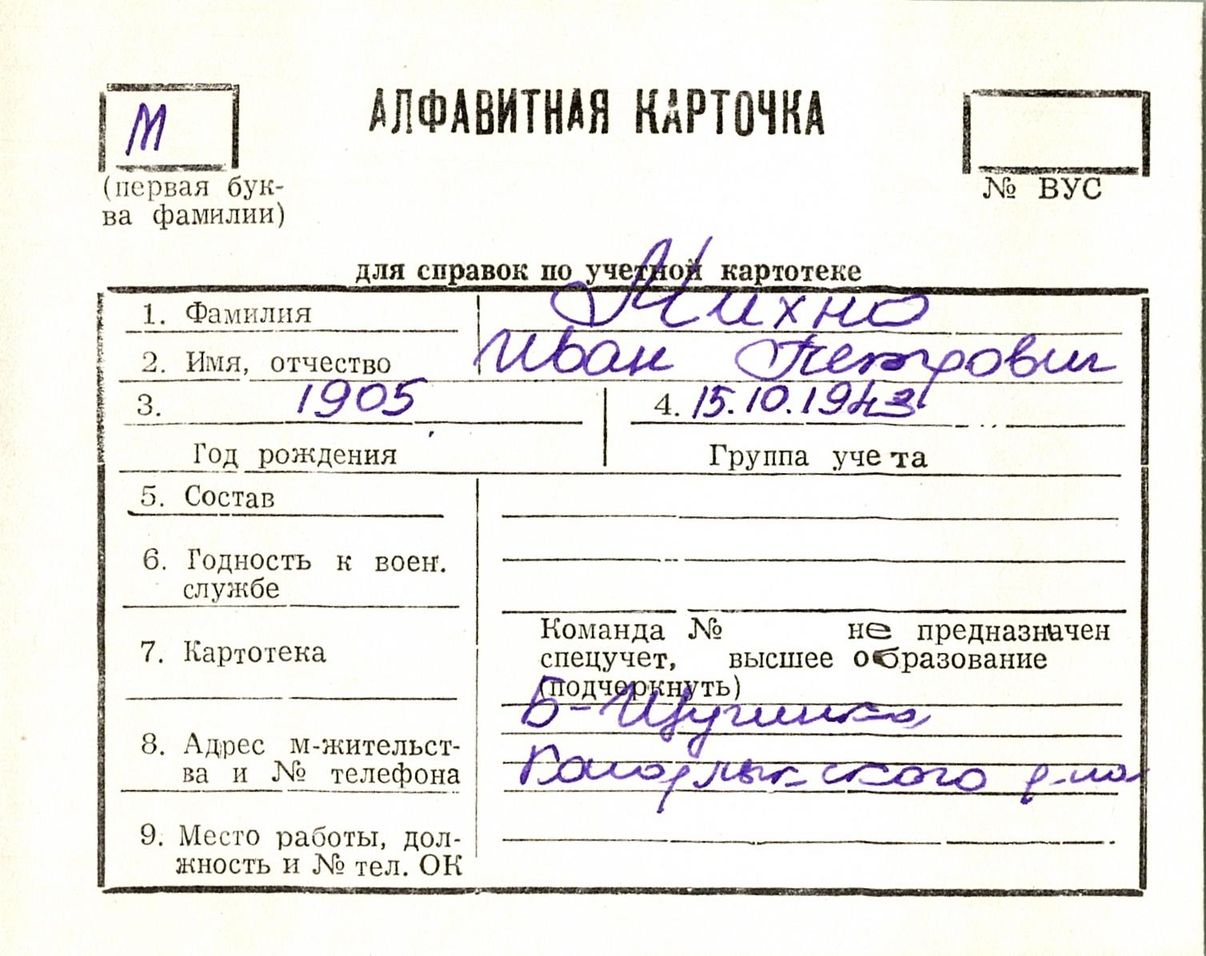 М
АЛФАВИТНАЯ КАРТОЧКА
(первая бук-
ва фамилии)
№ ВУС
для справок по учетной картотеке
1. Фамилия Михно
2. Имя, отчество Иван Петрович
3. 1905 4. 15.10.1943
Год рождения Группа учета
5. Состав
6. Годность к воен.
службе
7. Картотека
Команда № не предназначен
спецучет, высшее образование
(подчеркнуть)
Б-Щучинка
8. Адрес м-жительст-
ва и № телефона
Кагарлыкского р-на
9. Место работы, дол-
жность и № тел. ОК